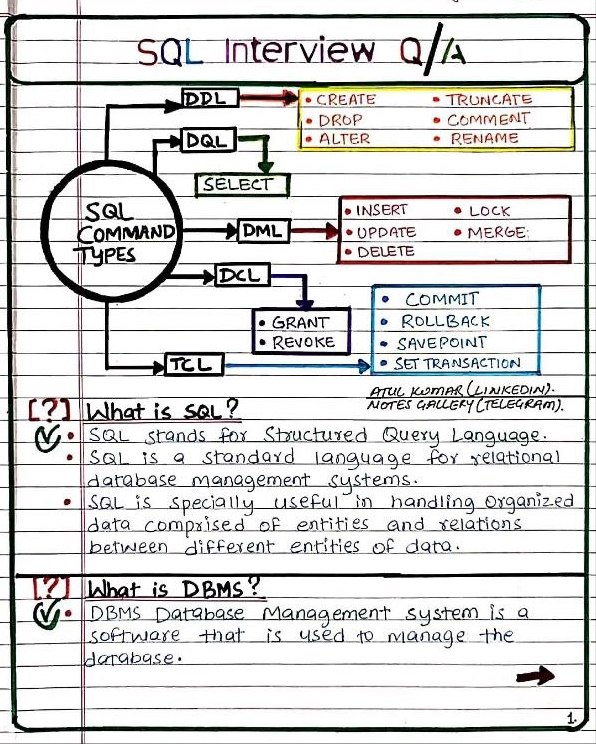 SQL Interview Q/A
DDL
• CREATE
• DROP
• ALTER
• TRUNCATE
• COMMENT
• RENAME
DQL
SELECT
SQL
COMMAND
TYPES
DML
• INSERT
• UPDATE
• DELETE
• LOCK
• MERGE
DCL
• GRANT
• REVOKE
TCL
• COMMIT
• ROLLBACK
• SAVEPOINT
• SET TRANSACTION
ATUL KUMAR (LINKEDIN).
NOTES GALLERY (TELEGRAM).
[?] What is SQL?
• SQL stands for Structured Query Language.
• SQL is a standard language for relational
database management systems.
• SQL is specially useful in handling organized
data comprised of entities and relations
between different entities of data.
[?] What is DBMS?
• DBMS Database Management system is a
software that is used to manage the
database.
1.